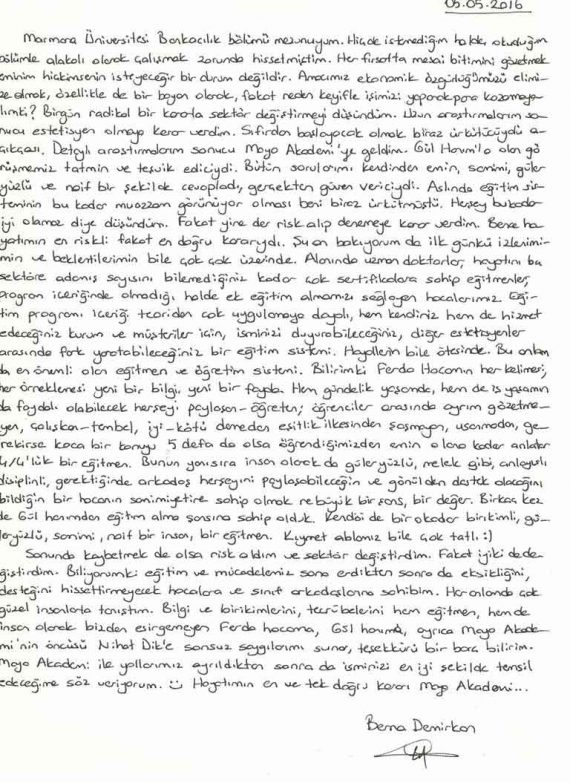 05.05.2016
Marmara Üniversitesi Bankacılık bölümü mezunuyum. Hiçde istemediğim halde, okuduğum
bölümle alakalı olarak çalışmak zorunda hissetmiştim. Her fırsatta mesai bitimini gözetmek
eminim hiçkimsenin isteyeceği bir durum değildir. Amacımız ekonomik özgürlüğümüzü elimi-
ze almak, özellikle de bir bayan olarak, fakat neden keyifle işimizi yaparak para kazanmaya-
lımki? Birgün radikal bir kararla sektör değiştirmeyi düşündüm. Uzun araştırmalarım so-
nucu estetisyen olmaya karar verdim. Sıfırdan başlayacak olmak biraz ürkütücüydü a-
çıkçası. Detaylı araştırmalarım sonucu Maya Akademi'ye geldim. Gül Hanım'la olan gö
rüşmemiz tatmin ve teşvik ediciydi. Bütün sorularımı kendinden emin, samimi, güler
yüzlü ve naif bir şekilde cevapladı, gerçekten güven vericiydi. Aslında eğitim sis-
teminin bu kadar muazzam görünüyor olması beni biraz ürkütmüştü. Herşey bu kadar
iyi olamaz diye düşündüm. Fakat yine de risk alıp denemeye karar verdim. Bence ha-
yatımın en riskli fakat en doğru kararıydı. Şu an bakıyorum da ilk günkü izlenimi-
min ve beklentilerimin bile çok çok üzerinde. Alanında uzman doktorlar, hayatını bu
sektöre adamış sayısını bilemediğiniz kadar çok sertifikalara sahip eğitmenler,
program içeriğinde olmadığı halde ek eğitim almamızı sağlayan hocalarımız. Eği-
tim programı içeriği teoriden çok uygulamaya dayalı, hem kendiniz hem de hizmet
edeceğiniz kurum ve müşteriler için, isminizi duyurabileceğiniz, diğer estetisyenler
arasında fark yaratabileceğiniz bir eğitim sistemi. Hayallerin bile ötesinde. Bu anlam
da en önemli olan eğitmen ve öğretim sistemi. Bilirimki Ferda Hocamın her kelimesi,
her örneklemesi yeni bir bilgi, yeni bir fayda. Hem gündelik yaşamda, hem de iş yaşamın
da faydalı olabilecek herşeyi paylaşan-öğreten; öğrenciler arasında ayrım gözetme-
yen, çalışkan-tembel, iyi-kötü demeden eşitlik ilkesinden şaşmayan, usanmadan, ge-
rekirse kaca bir konuyu 5 defa da olsa öğrendiğimizden emin olana kadar anlatan
4/4'lük bir eğitmen. Bunun yanısıra insan olarak da güleryüzlü, melek gibi, anlayışlı
disiplinli, gerektiğinde arkadaş herşeyini paylaşabileceğin ve gönülden destek olacağını
bildiğin bir hocanın samimiyetine sahip olmak ne büyük bir şans, bir değer. Birkaç kez
de Gül hanımdan eğitim alma şansına sahip olduk. Kendisi de bir o kadar birikimli, gü-
leryüzlü, samimi, naif bir insan, bir eğitmen. Kıymet ablamız bile çok tatlı :)
Sonunda kaybetmek de olsa risk aldım ve sektör değiştirdim. Fakat iyiki de de-
ğiştirdim. Biliyorumki eğitim ve mücadeleniz sona erdikten sonra da eksikliğini,
desteğini hissettirmeyecek hocalara ve sınıf arkadaşlarına sahibim. Her anlamda çok
güzel insanlarla tanıştım. Bilgi ve birikimlerini, tecrübelerini hem eğitmen, hem de
insan olarak bizden esirgemeyen Ferda hocama, Gül hanıma, ayrıca Maya Akade-
mi'nin öncüsü Nihat Dik'e sonsuz saygılarımı sunar, teşekkürü bir borç bilirim.
Maya Akademi ile yollarımız ayrıldıktan sonra da isminizi en iyi şekilde temsil
edeceğime söz veriyorum. :) Hayatımın en ve tek doğru kararı Maya Akademi...
Berna Demirkan